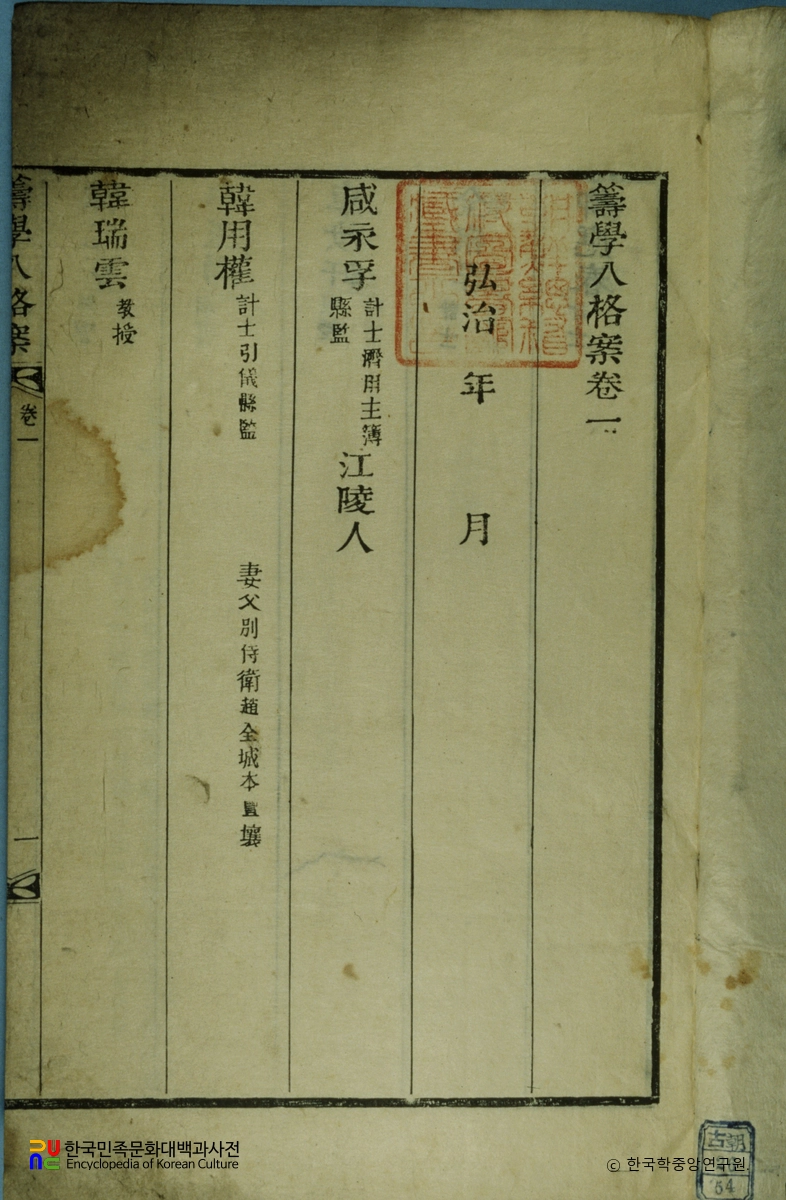 籌學入格案卷一
弘治 年 月
咸永孚 計士濟用主簿
縣監
江陵人
韓用權 計士引儀縣監 妻父別侍衛趙全城本豊壤
韓瑞雲 教授
籌學入格案
卷一
一
한국민족문화대백과사전
Encyclopedia of Korean Culture
© 한국학중앙연구원
古朝
54